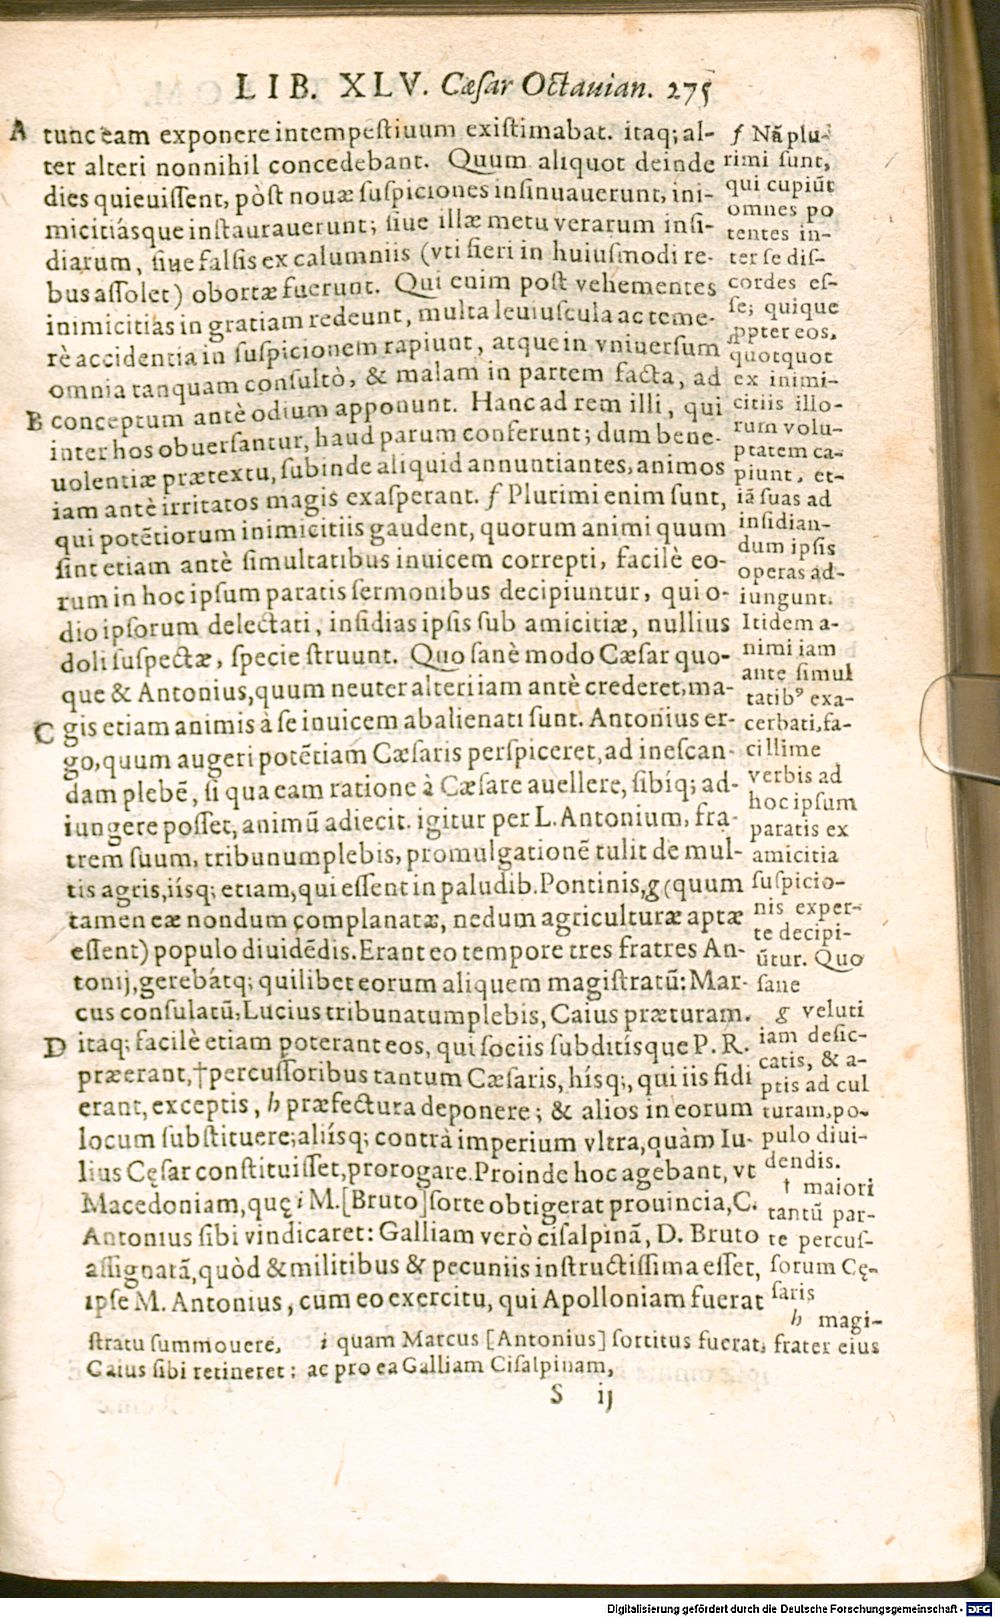 LIB. XLV. Cæſar Octauian. 275
A tunc eam exponere intempeſtiuum exiſtimabat. itaq; al-
ter alteri nonnihil concedebant. Quum aliquot deinde
dies quieuiſſent, pòſt nouæ ſuſpiciones inſinuauerunt, ini-
micitiásque inſtaurauerunt; ſiue illæ metu verarum inſi-
diarum, ſiue falſis ex calumniis (vti fieri in huiuſmodi re-
bus aſſolet) obortæ fuerunt. Qui enim poſt vehementes
inimicitias in gratiam redeunt, multa leuiuſcula ac teme-
rè accidentia in ſuſpicionem rapiunt, atque in vniuerſum
omnia tanquam conſultò, & malam in partem facta, ad
B conceptum antè odium apponunt. Hanc ad rem illi, qui
inter hos obuerſantur, haud parum conferunt; dum bene-
uolentiæ prætextu, ſubinde aliquid annuntiantes, animos
iam antè irritatos magis exaſperant. f Plurimi enim ſunt,
qui potẽtiorum inimicitiis gaudent, quorum animi quum
ſint etiam antè ſimultatibus inuicem correpti, facilè eo-
rum in hoc ipſum paratis ſermonibus decipiuntur, qui o-
dio ipſorum delectati, inſidias ipſis ſub amicitiæ, nullius
doli ſuſpectæ, ſpecie ſtruunt. Quo ſanè modo Cæſar quo-
que & Antonius, quum neuter alteri iam antè crederet, ma-
C gis etiam animis à ſe inuicem abalienati ſunt. Antonius er-
go, quum augeri potẽtiam Cæſaris perſpiceret, ad ineſcan-
dam plebẽ, ſi qua eam ratione à Cæſare auellere, ſibíq; ad-
iungere poſſet, animũ adiecit. igitur per L. Antonium, fra-
trem ſuum, tribunum plebis, promulgationẽ tulit de mul-
tis agris, iísq; etiam, qui eſſent in paludib. Pontinis, g (quum
tamen eæ nondum complanatæ, nedum agriculturæ aptæ
eſſent) populo diuidẽdis. Erant eo tempore tres fratres An-
tonij, gerebátq; quilibet eorum aliquem magiſtratũ: Mar-
cus conſulatũ, Lucius tribunatum plebis, Caius præturam.
D itaq; facilè etiam poterant eos, qui ſociis ſubditísque P. R.
præerant, †percuſſoribus tantum Cæſaris, hísq;, qui iis fidi
erant, exceptis, h præfectura deponere; & alios in eorum
locum ſubſtituere; aliísq; contrà imperium vltra, quàm Iu-
lius Cęſar conſtituiſſet, prorogare. Proinde hoc agebant, vt
Macedoniam, quę i M. [Bruto] ſorte obtigerat prouincia, C.
Antonius ſibi vindicaret: Galliam verò ciſalpinã, D. Bruto
aſſignatã, quòd & militibus & pecuniis inſtructiſſima eſſet,
ipſe M. Antonius, cum eo exercitu, qui Apolloniam fuerat
f Nã plu-
rimi ſunt,
qui cupiũt
omnes po
tentes in-
ter ſe diſ-
cordes eſ-
ſe; quique
ꝓpter eos,
quotquot
ex inimi-
citiis illo-
rum volu-
ptatem ca-
piunt, et-
iã ſuas ad
inſidian-
dum ipſis
operas ad-
iungunt.
Itidem a-
nimi iam
ante ſimul
tatibꝰ exa-
cerbati, fa-
cillime
verbis ad
hoc ipſum
paratis ex
amicitia
ſuſpicio-
nis exper-
te decipi-
ũtur. Quo
ſane
g veluti
iam deſic-
catis, & a-
ptis ad cul
turam, po-
pulo diui-
dendis.
† maiori
tantũ par-
te percuſ-
ſorum Cę-
ſaris
h magi-
ſtratu ſummouere, i quam Marcus [Antonius] ſortitus fuerat, frater eius
Caius ſibi retineret: ac pro ea Galliam Ciſalpinam,
S ij
Digitalisierung gefördert durch die Deutsche Forschungsgemeinschaft - DFG